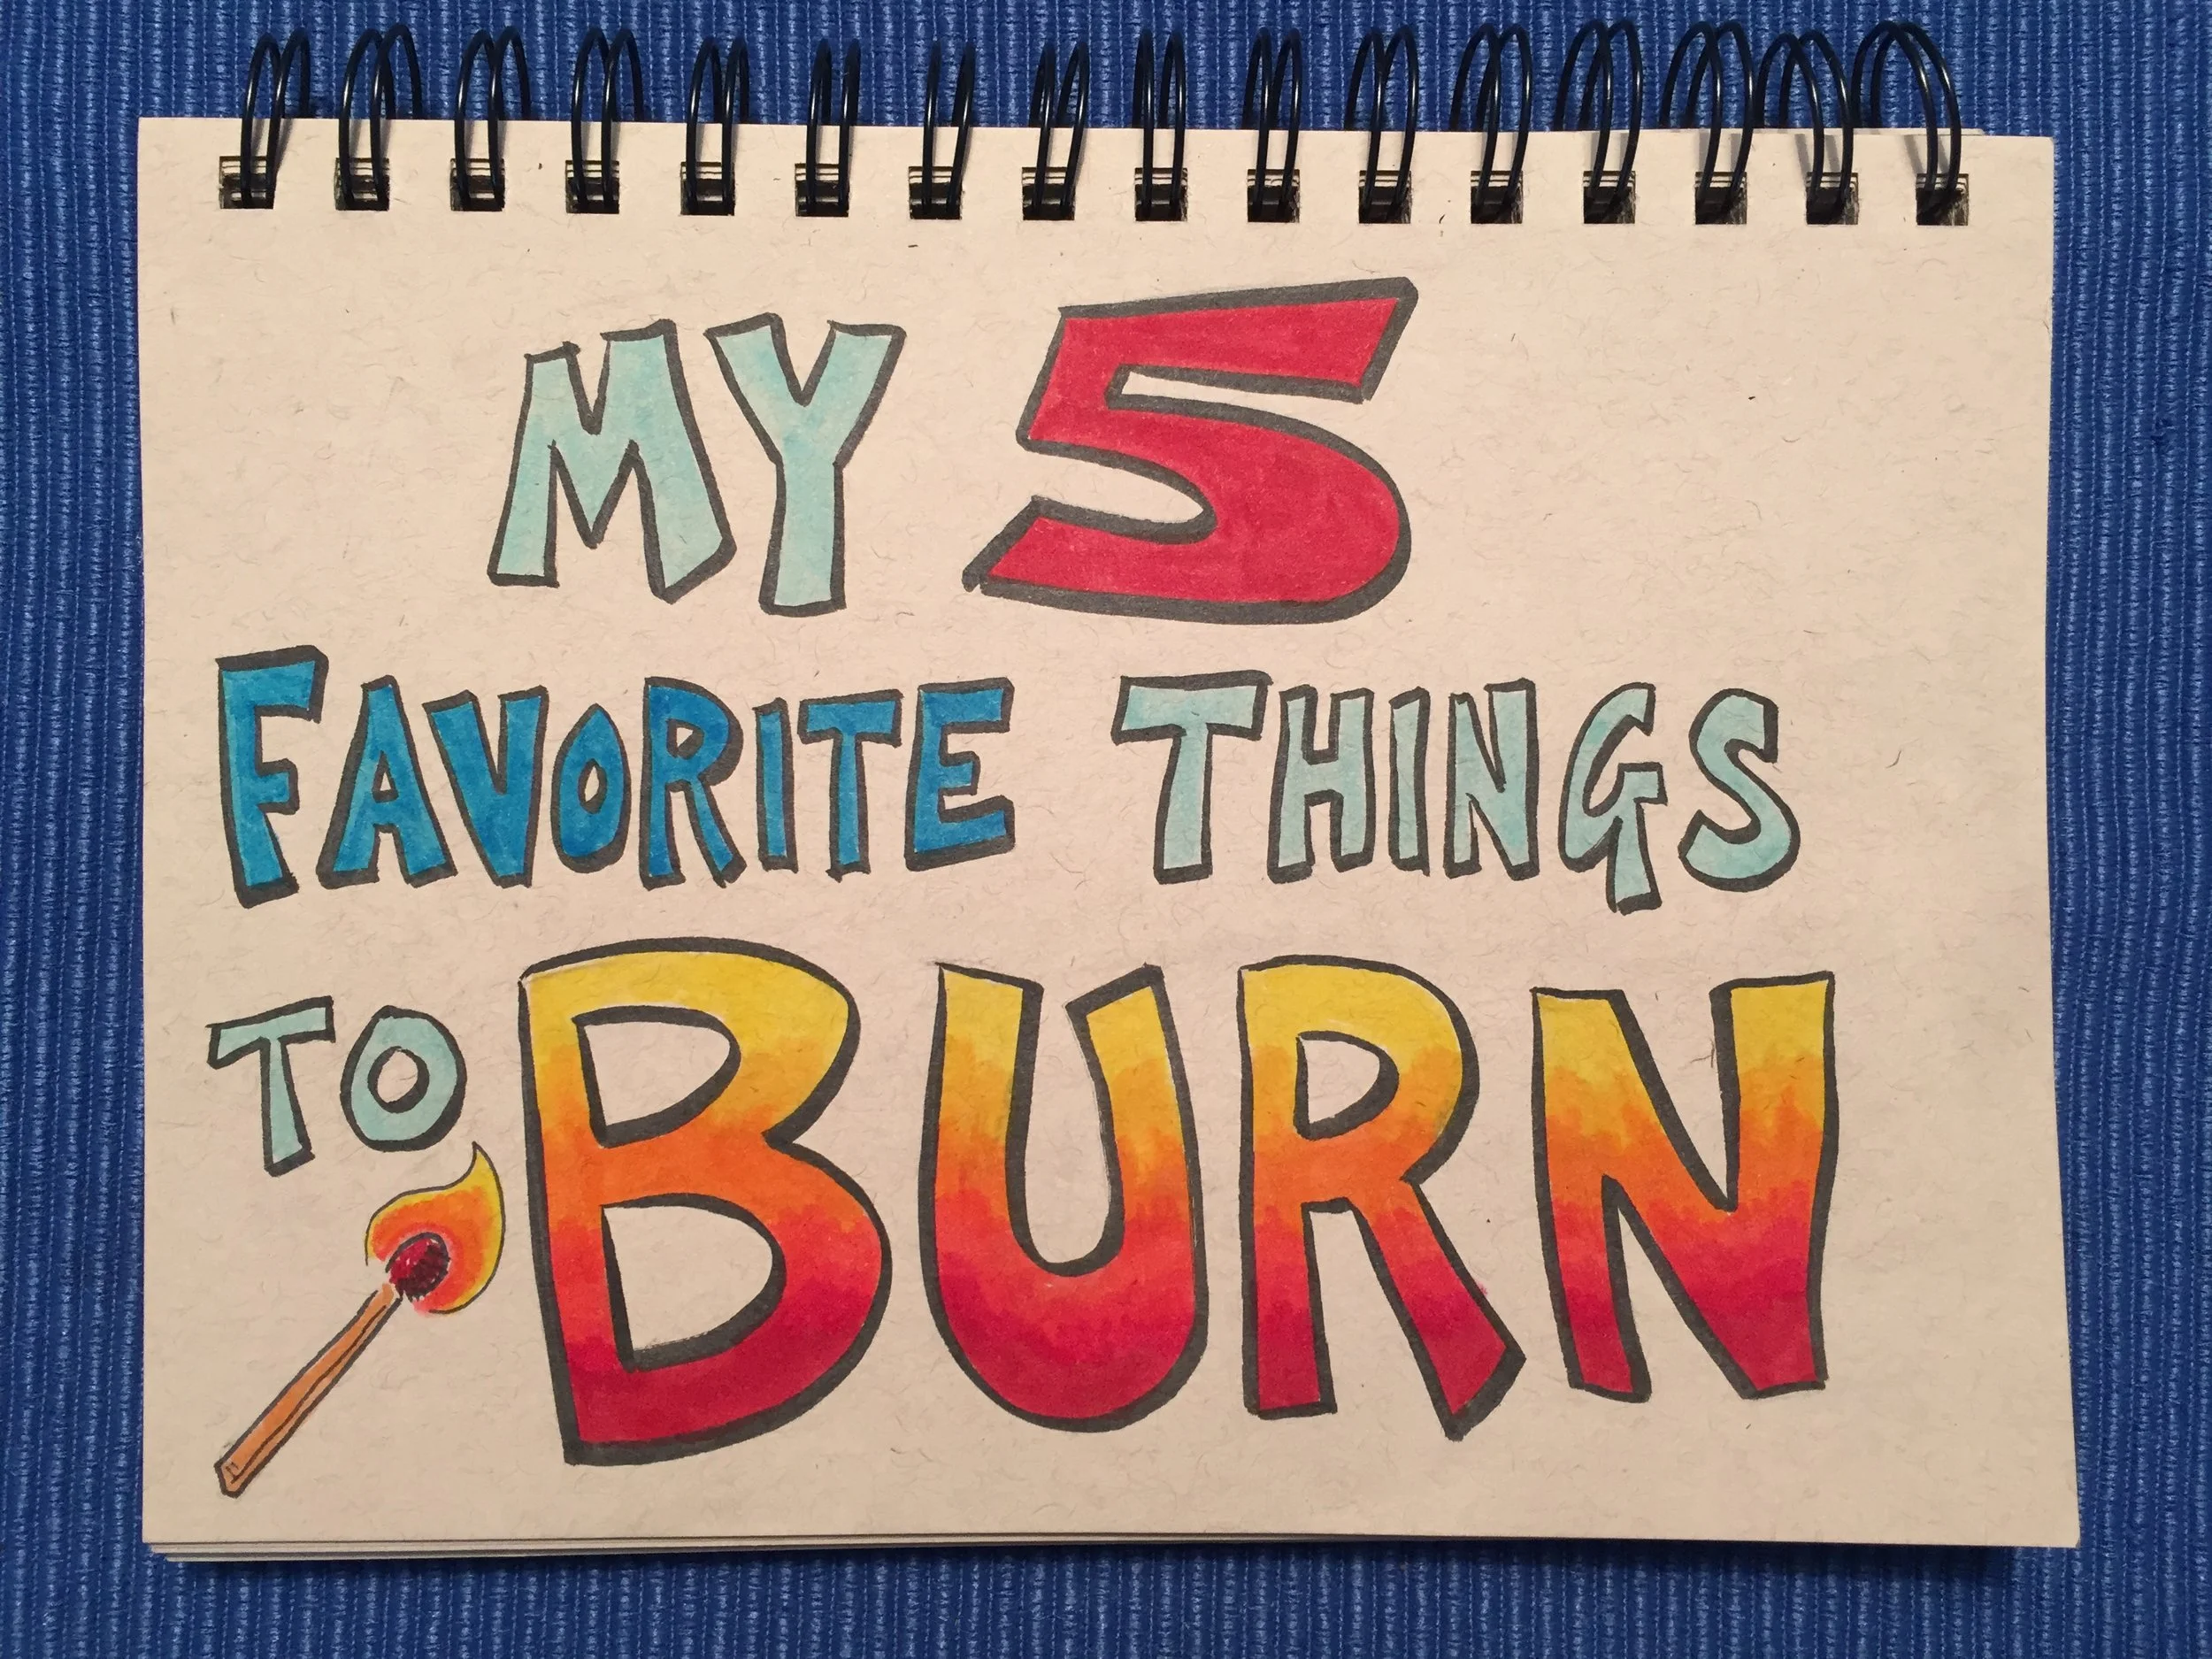 MY 5
FAVORITE THINGS
TO BURN